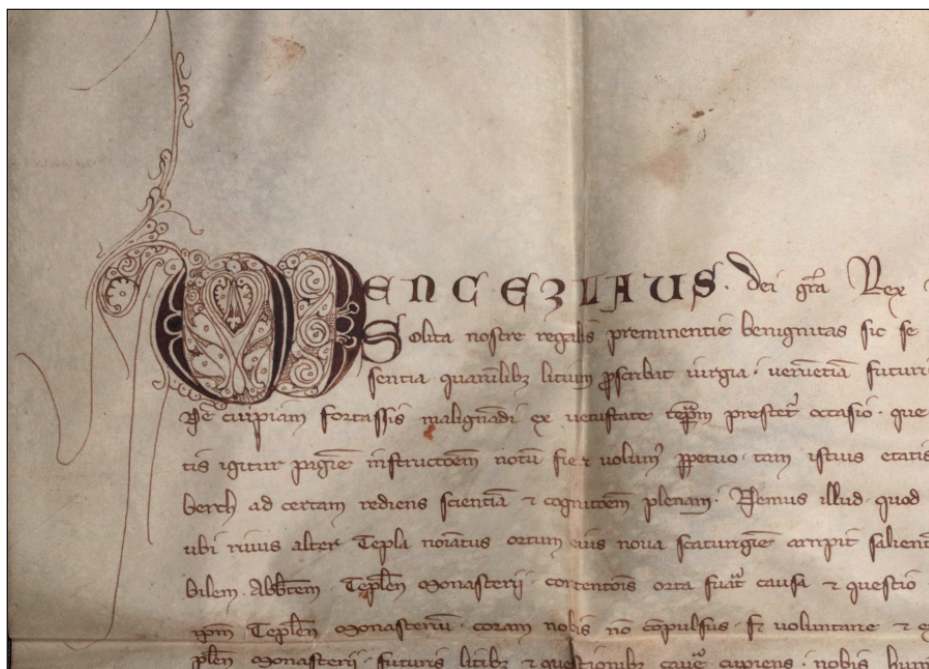 WENCEZLAUS. dei gr̄a Rex
Solita nostre regalis preminentie benignitas sic se
sentia quar̄ūlibꝫ litium ꝓscribat iurgia · ver̄uetiā futuri
Ne cuipiam fortassis malignādi ex uetustate prestet᷑ occasio · que
tis igitur pagīe instructōem notū fieꝛ uolum᷒ ꝑpetuo · tam istius etatis
berch ad certam rediens scientiā ⁊ cognitōem plenam · Nemus illud · quod
ubi riuus alter Tepla noīatus ortum eius noua scaturigīe arripit
bilem · Abb̄tem · Teplen̄ monasterii · orta causa ⁊ questio
ip̄m Teplen̄ monasteriū · coram nobis nō cōpulsus · sꝫ uoluntarie ⁊
plen̄ monasterii · futuris litibꝫ ⁊ questionibꝫ cauē cupiens · nobis